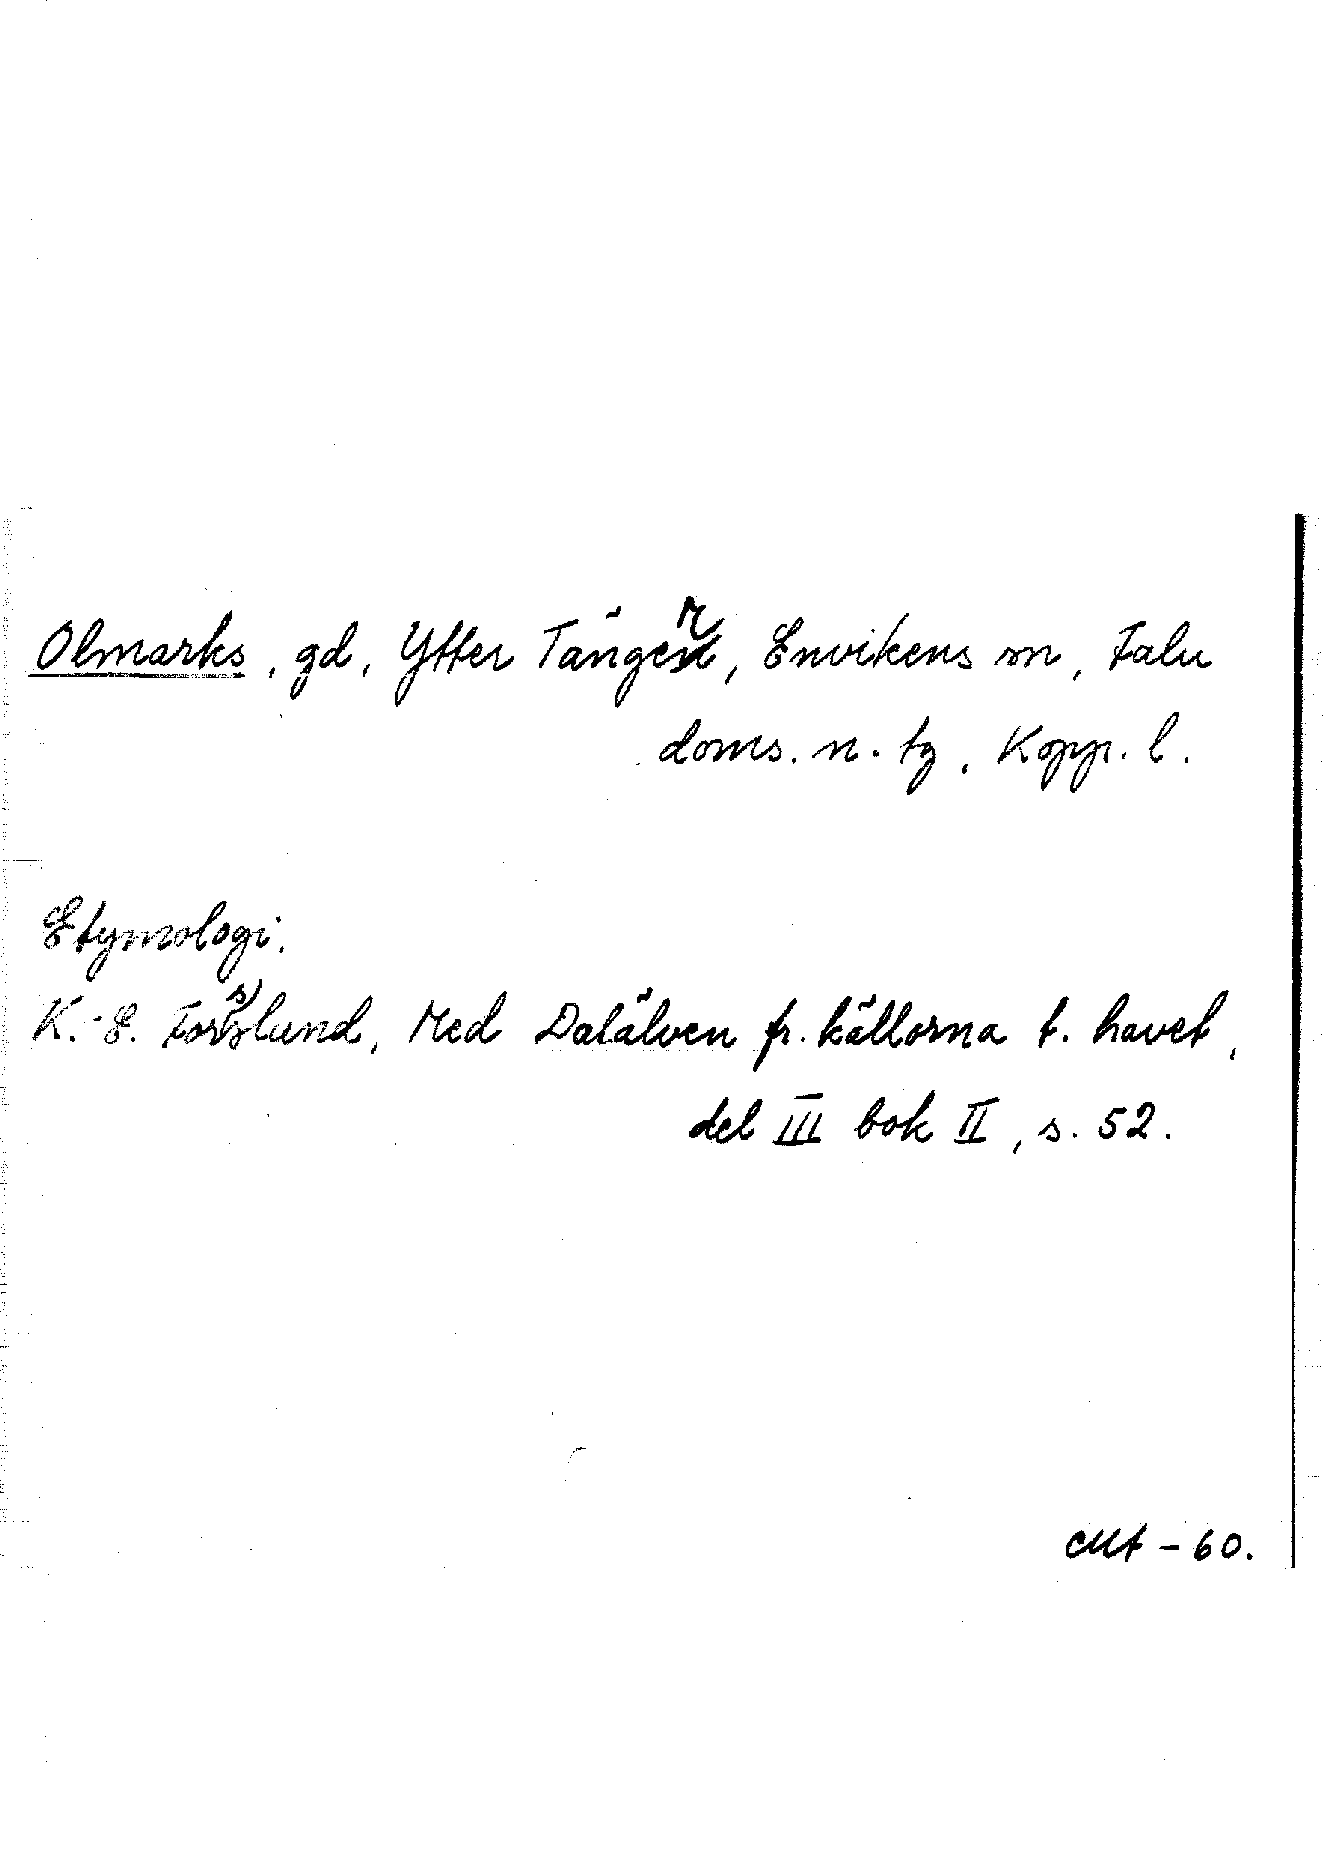 Olmarks, gd, Ytter Tänger, Envikens sn, Falu
doms. n. tg, Kopp. l.
Etymologi.
K.-E. Forsslund, Med Dalälven fr. källorna t. havet,
del III bok II, s. 52.
- 60.